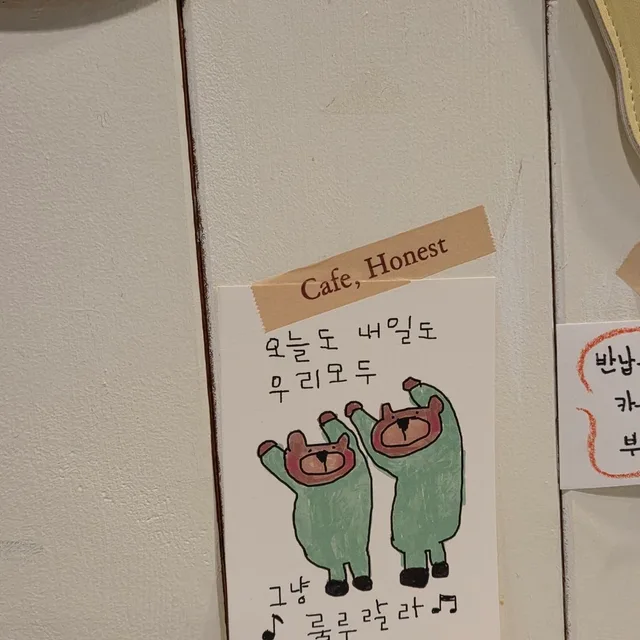 Cafe, Honest
오늘도 내일도
우리모두
그냥
♪ 룰루랄라 ♫
반납
카
부